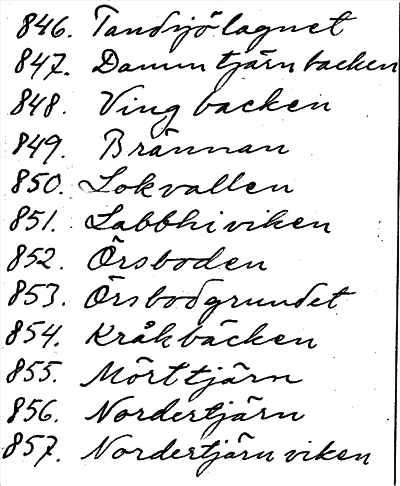 846. Tandsjölagnet
847. Dammtjärnbacken
848. Vingbacken
849. Brännan
850. Lokvallen
851. Labbhiviken
852. Örsboden
853. Örsbodgrundet
854. Kråkbäcken
855. Mörttjärn
856. Nordertjärn
857. Nordertjärnviken